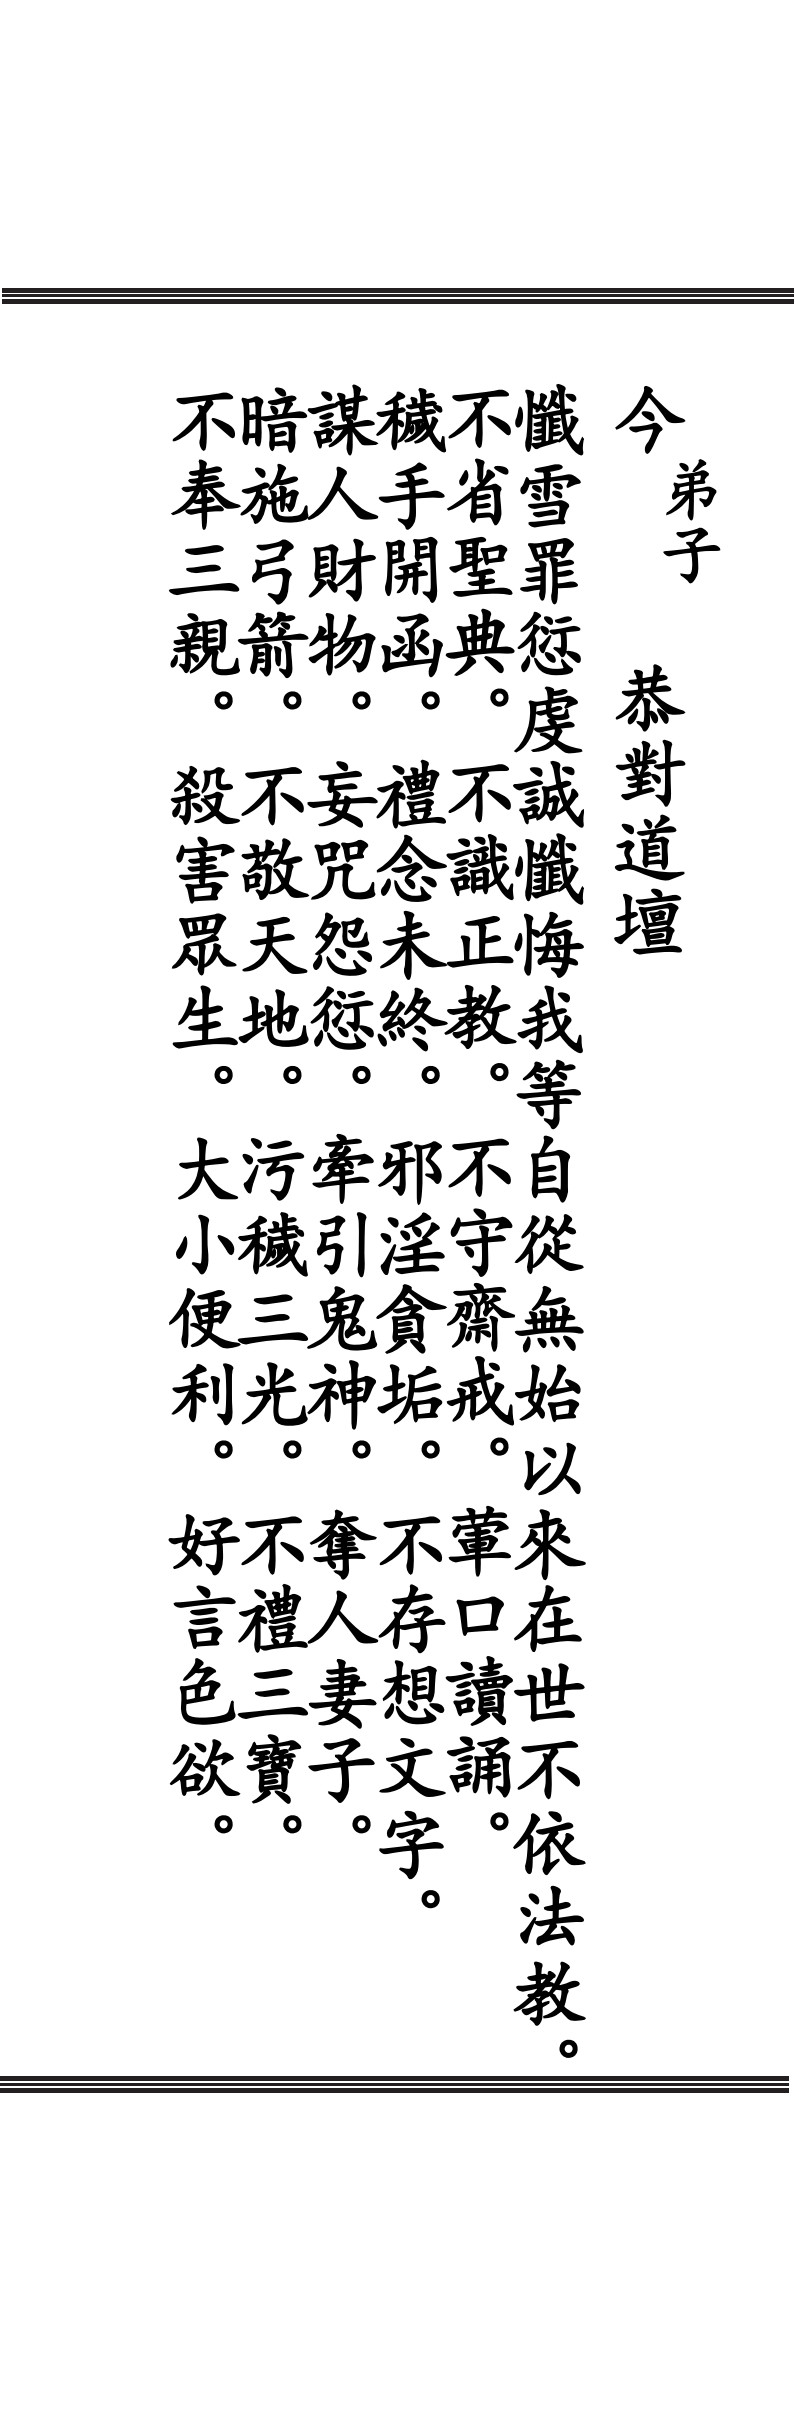 今弟子 恭對道壇
懺雪罪愆虔誠懺悔我等自從無始以來在世不依法教。
不省聖典。不識正教。不守齋戒。葷口讀誦。
穢手開函。禮念未終。邪淫貪垢。不存想文字。
謀人財物。妄咒怨愆。牽引鬼神。奪人妻子。
暗施弓箭。不敬天地。污穢三光。不禮三寶。
不奉三親。殺害眾生。大小便利。好言色欲。